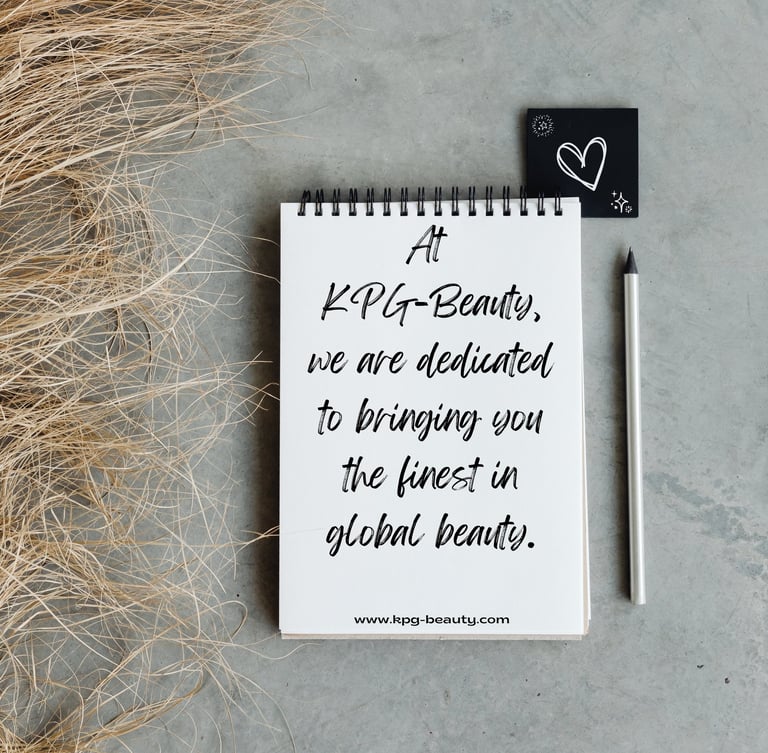 At
KPG-Beauty,
we are dedicated
to bringing you
the finest in
global beauty.
www.kpg-beauty.com